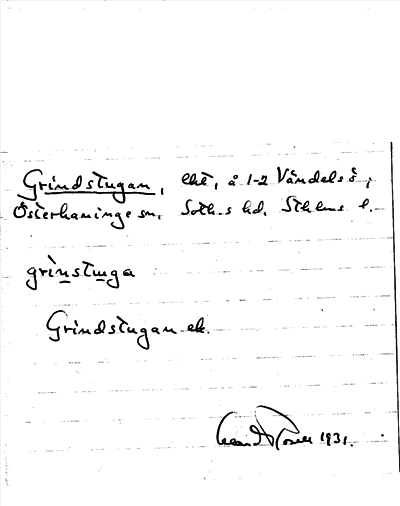 Grindstugan, lht, å 1-2 Vändelsö,
Österhaninge sn, Soth-s hd. Sthlms l.
grinstuga
Grindstugan ek.
1931.